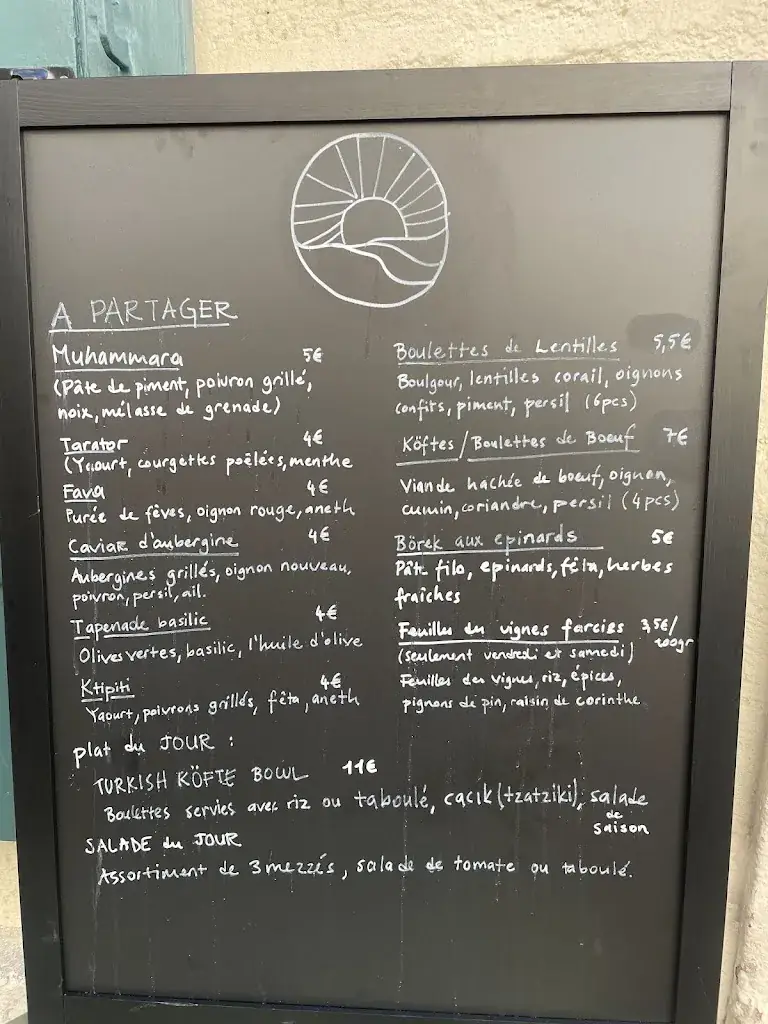 A PARTAGER
Muhammara 5€
(Pâte de piment, poivron grillé,
noix, mélasse de grenade)
Tarator 4€
(Yaourt, courgettes poêlées, menthe
Fava 4€
Purée de fêves, oignon rouge, aneth
Caviar d'aubergine 4€
Aubergines grillés, oignon nouveau,
poivron, persil, ail.
Tapenade basilic 4€
Olives vertes, basilic, l'huile d'olive
Ktipiti 4€
Yaourt, poivrons grillés, fêta, aneth
Boulettes de Lentilles 5,5€
Boulgour, lentilles corail, oignons
confits, piment, persil (6pcs)
Köftes/Boulettes de Boeuf 7€
Viande hachée de boeuf, oignon,
cumin, coriandre, persil (4pcs)
Börek aux epinards 5€
Pâte filo, epinards, fêta, herbes
fraîches
Feuilles des vignes farcies 3,5€/
100gr
(seulement vendredi et samedi)
Feuilles des vignes, riz, épices,
pignons de pin, raisin de corinthe
plat du JOUR :
TURKISH KÖFTE BOWL 11€
Boulettes servies avec riz ou taboulé, cacik (tzatziki), salade
de
saison
SALADE du JOUR
Assortiment de 3 mezzés, salade de tomate ou taboulé.